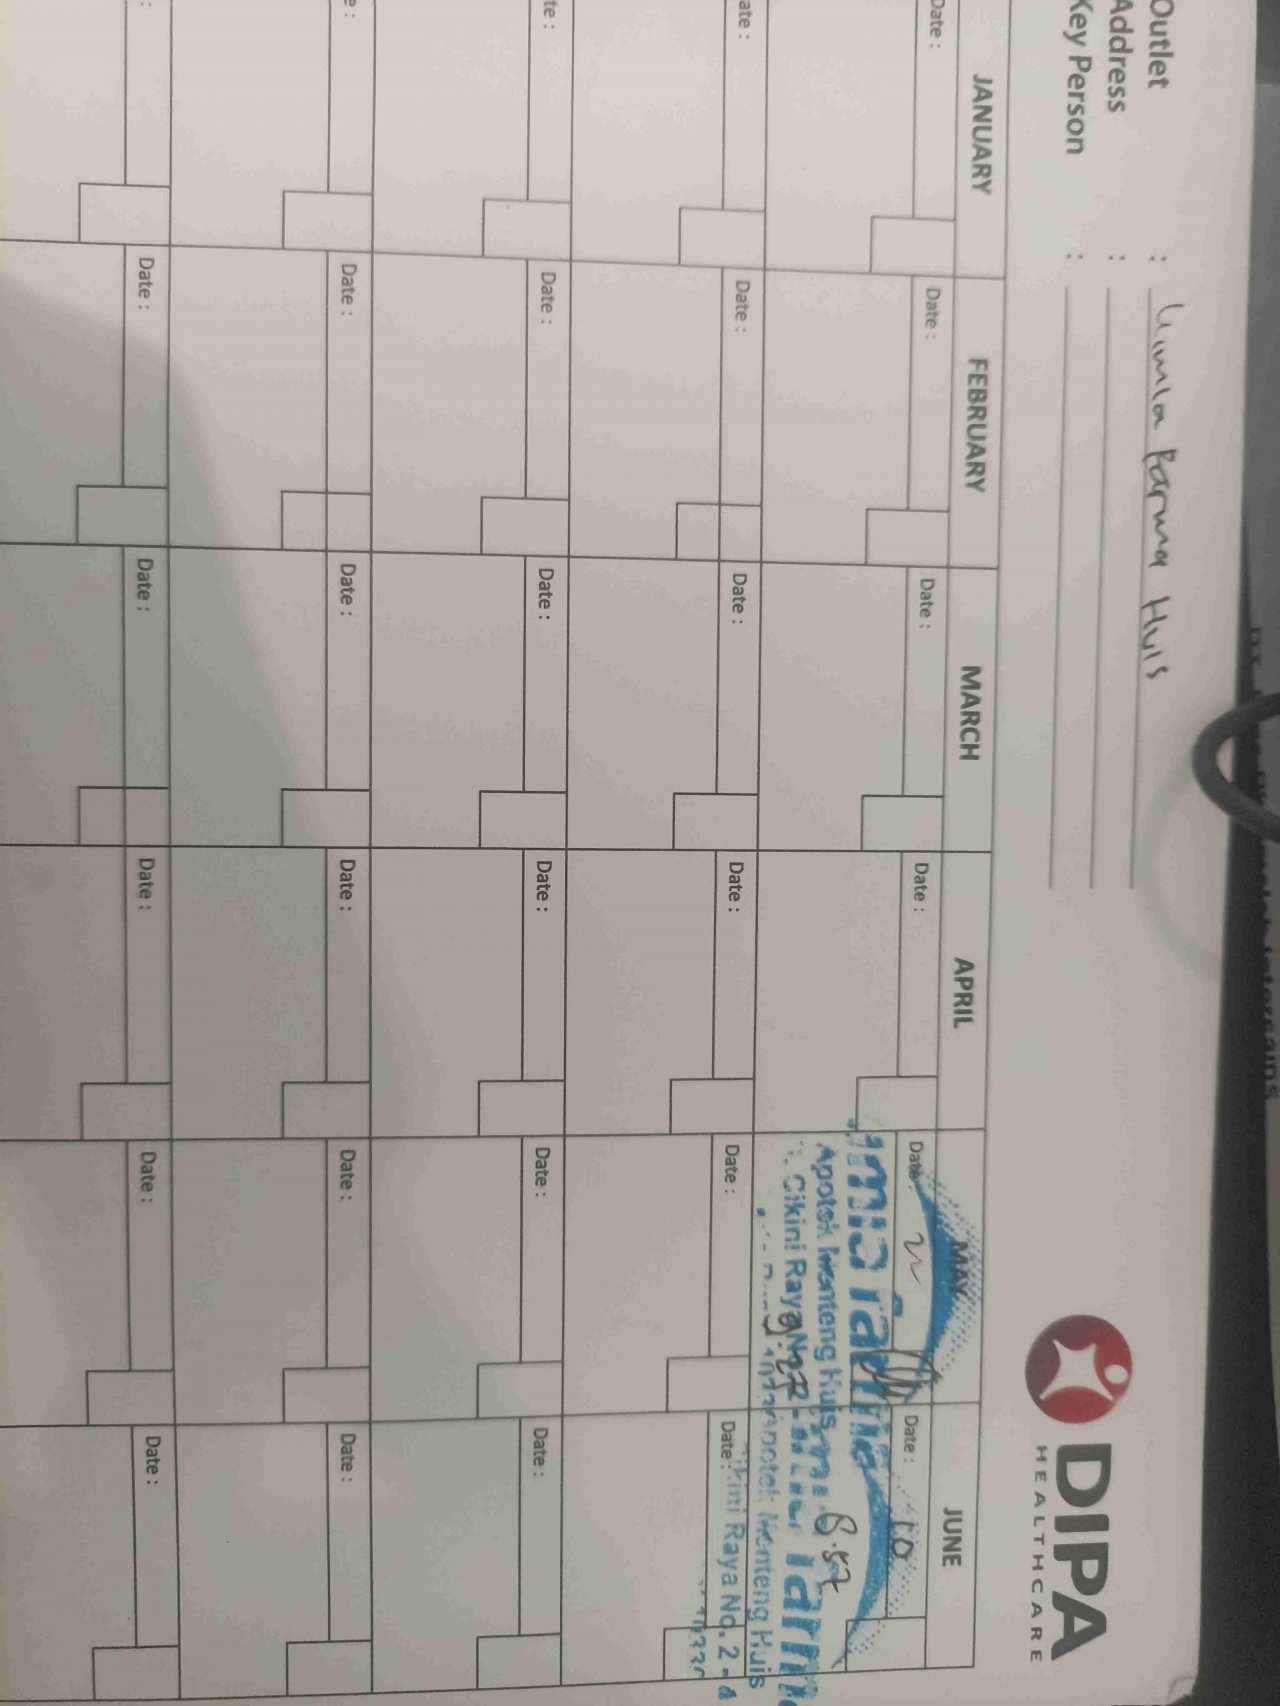 Outlet : Kimia Farma Huis
Address :
Key Person :
DIPA
HEALTHCARE
JANUARY FEBRUARY MARCH APRIL MAY JUNE
Date : Date : Date : Date : Date : Date : 10
Apotek Menteng Huis
Cikini Raya No. 2 -
8.57
ate : Date : Date : Date : Date : Date :
Apotek Menteng Huis
Cikini Raya No. 2 - 4
10330
te : Date : Date : Date : Date : Date :
e : Date : Date : Date : Date : Date :
: Date : Date : Date : Date : Date :